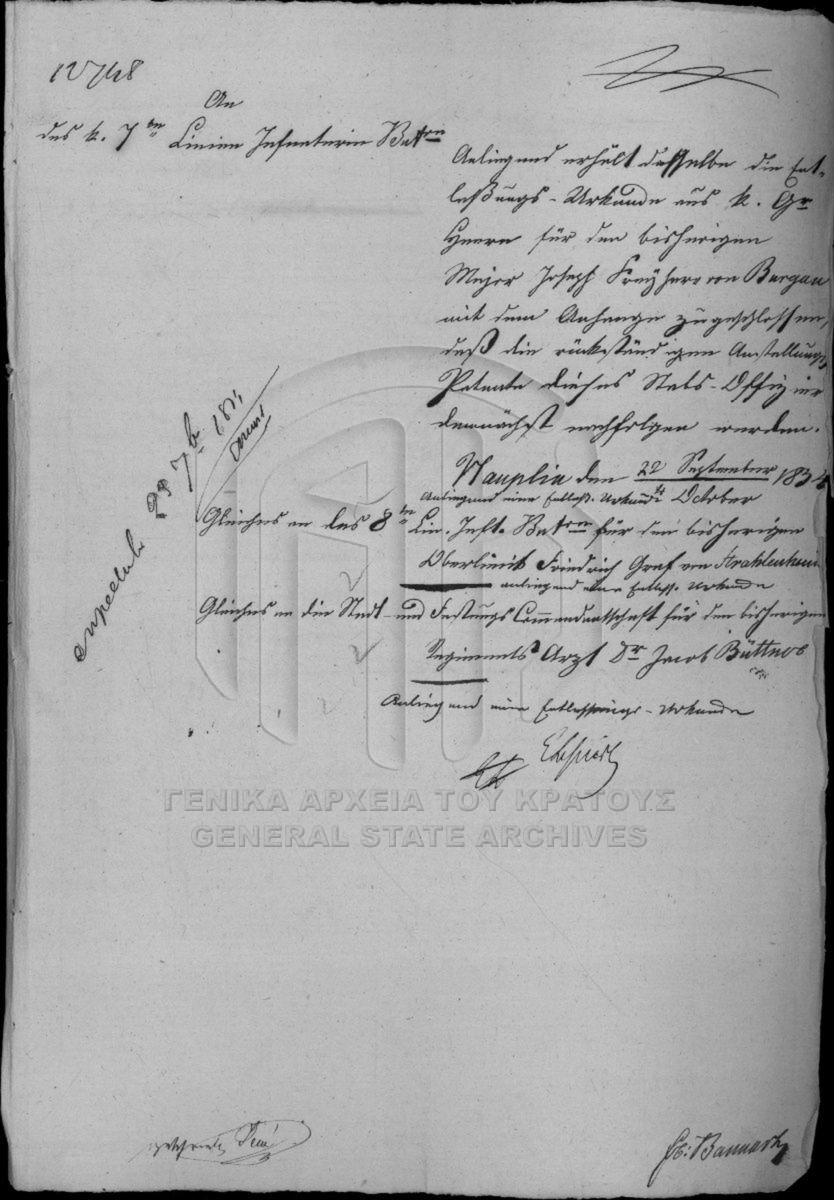 12748
An
das k. 7te Linien Infanterie Baton
Anliegend erhält dasselbe die Ent-
laßungs-Urkunde aus k. Gr
Heere für den bisherigen
Major Joseph Freyherr von Burgau
mit dem Anhange zugeschlossen,
daß die rückständigen Anstellungs
Patente dieses Stabs-Offizier
demnächst nachfolgen werden.
Nauplia den 22 September 1834
Anliegend eine Entlaß. Urkunde October
Gleiches an das 8te Lin. Inft. Baton für den bisherigen
Oberlieut Friedrich Graf von Strahlenheim
anliegend eine Entlass. Urkunde
Gleiches an die Stadt- und Festungs Commandantschaft für den bisherigen
Regiments Arzt Dr Jacob Büttner
Anliegend eine Entlassungs-Urkunde
expedirt 29 7b 1834
ΓΕΝΙΚΑ ΑΡΧΕΙΑ ΤΟΥ ΚΡΑΤΟΥΣ
GENERAL STATE ARCHIVES